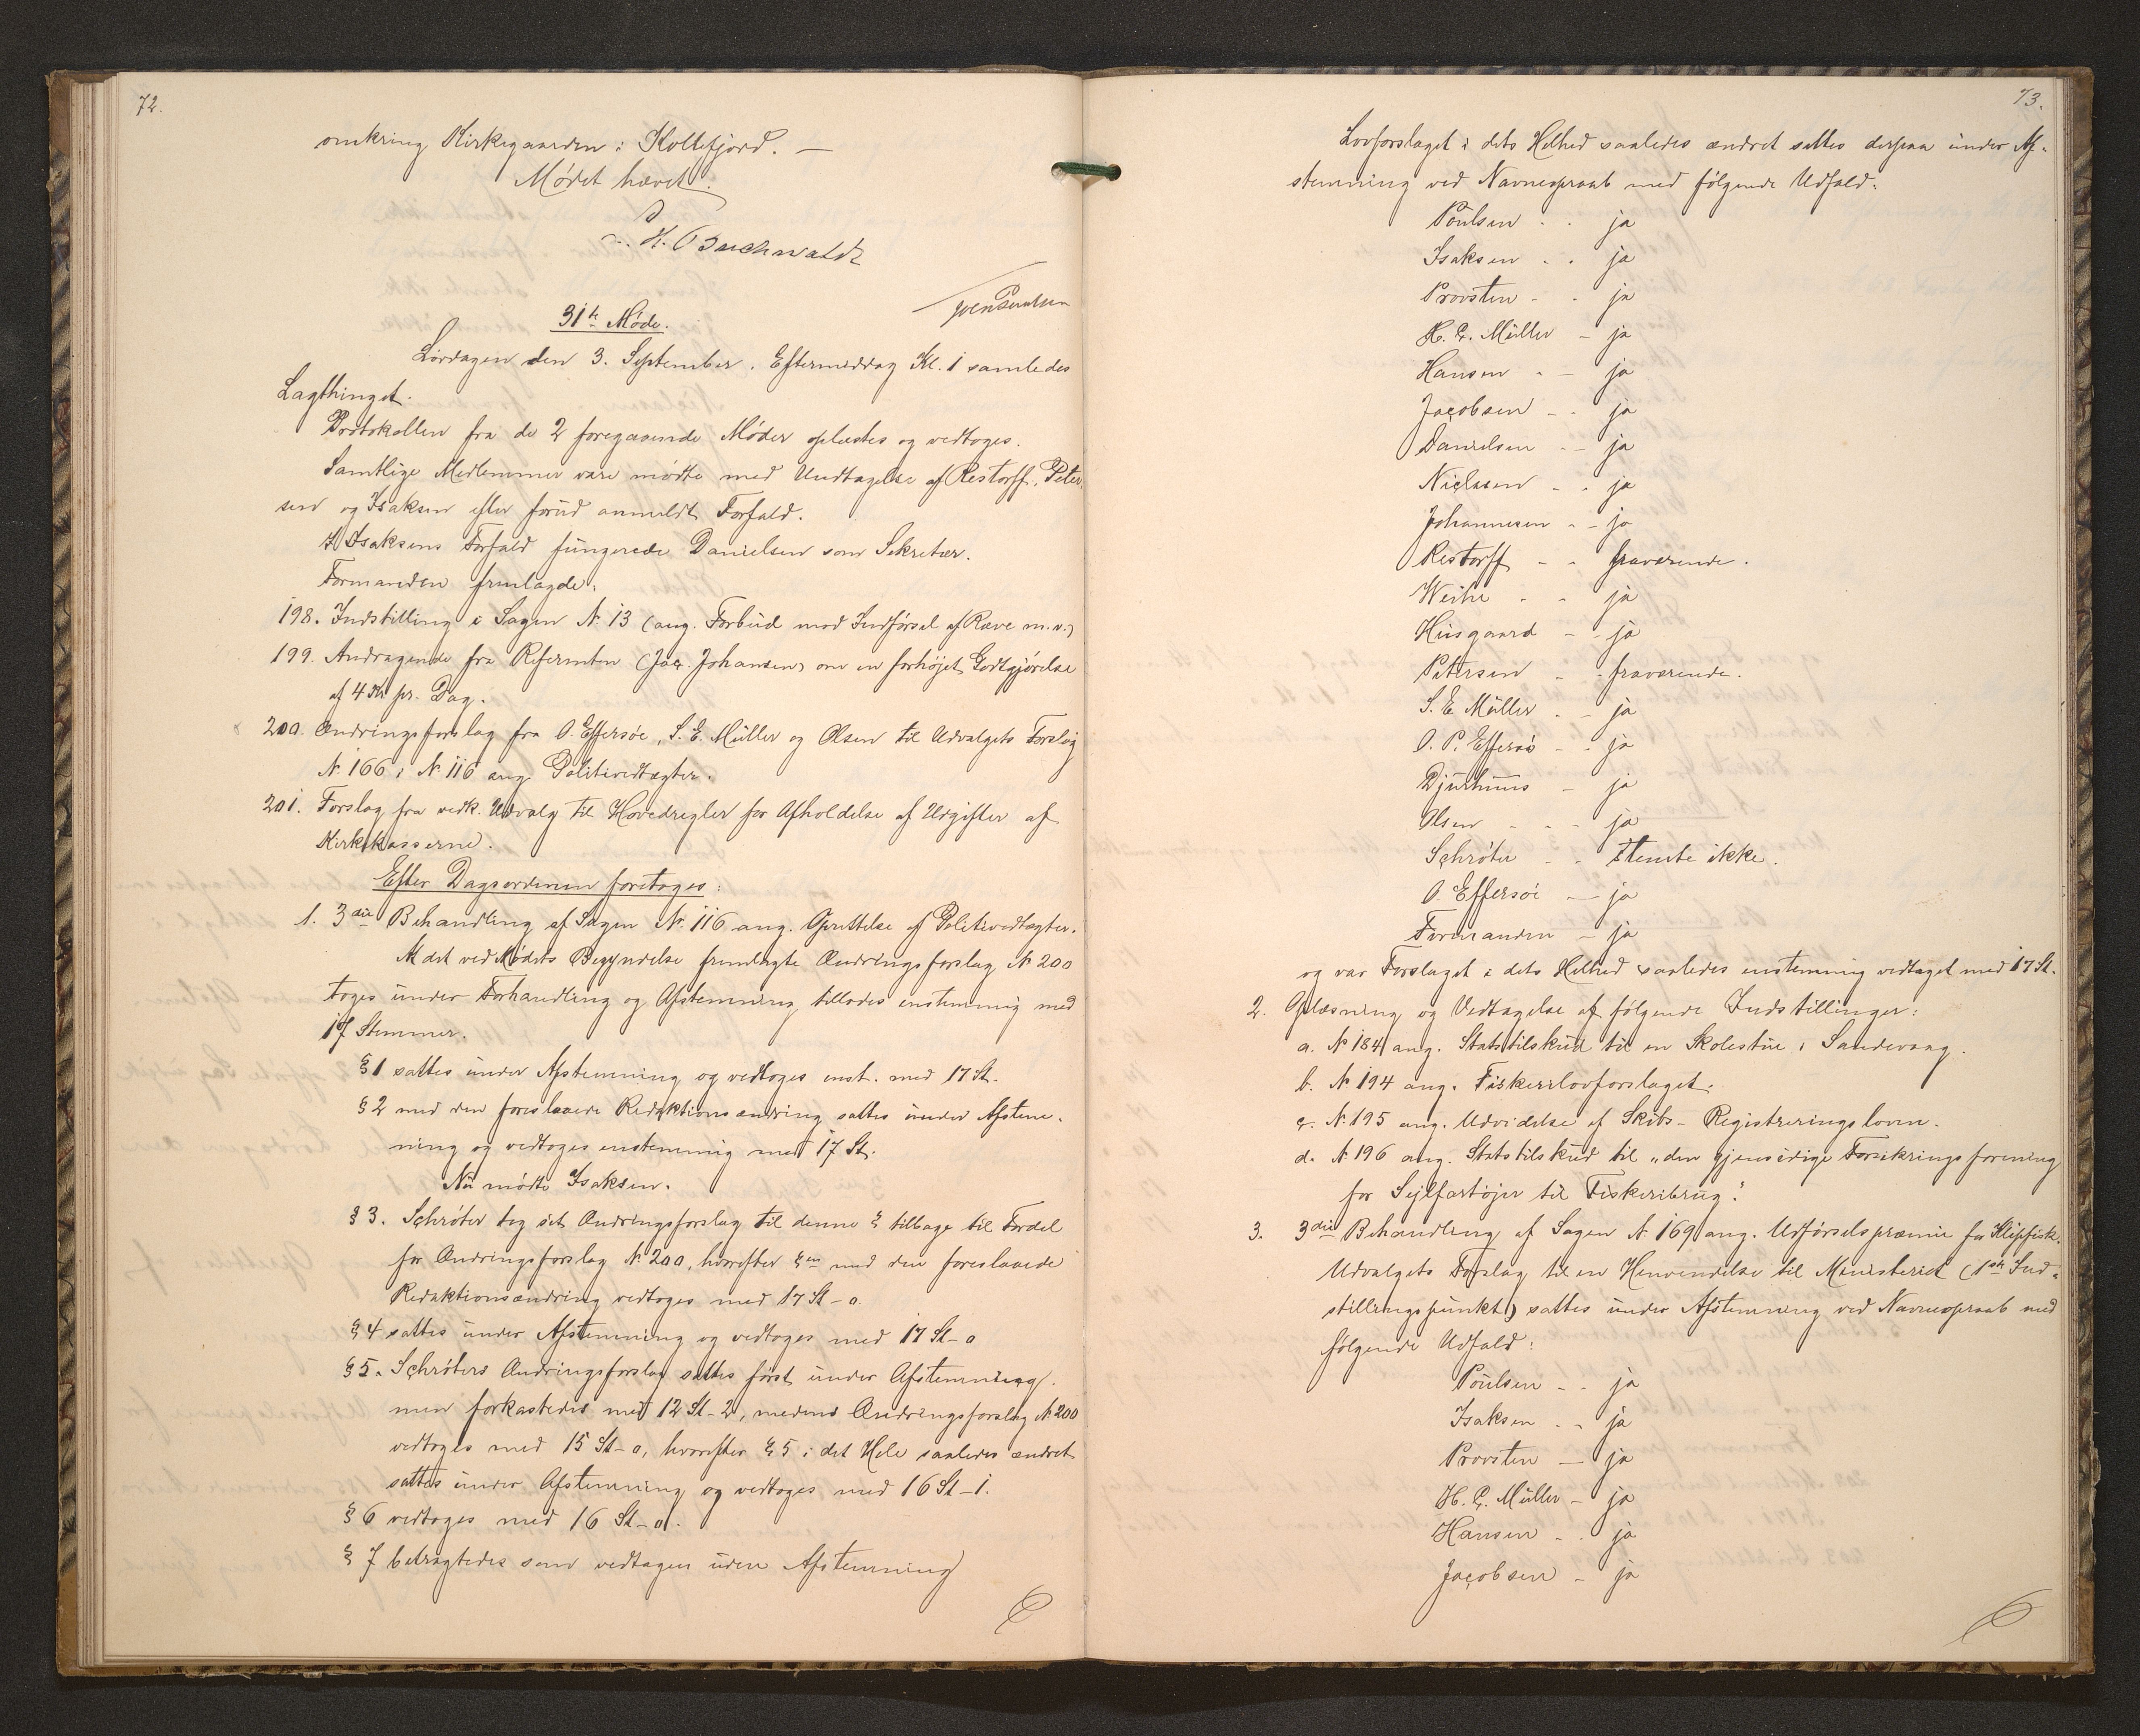 72.
omkring Kirkegaarden i Kollefjord. —
Mødet hævet.
H. Buchwaldt
Joen Poulsen
31te Møde.
Lørdagen den 3. September, Eftermiddag Kl. 1 samledes
Lagthinget.
Protokollen fra de 2 foregaaende Møder oplæstes og vedtoges.
Samtlige Medlemmer vare mødte med Undtagelse af Restorff, Peter-
sen og Isaksen efter forud anmeldt Forfald.
I Isaksens Forfald fungerede Danielsen som Sekretær.
Formanden fremlagde:
198. Indstilling i Sagen № 13 (ang. Forbud mod Indførsel af Ræve m.v.)
199. Andragende fra Referenten (Jac. Johansen) om en forhøjet Godtgjørelse
af 4 Kr. pr. Dag.
200. Ændringsforslag fra O. Effersøe, S. E. Müller og Olsen til Udvalgets Forslag
№ 166 i № 116 ang. Politivedtægter.
201. Forslag fra vedk. Udvalg til Hovedregler for Afholdelse af Udgifter af
Kirkekasserne.
Efter Dagsordenen foretoges:
1. 3die Behandling af Sagen № 116 ang. Oprettelse af Politivedtægter.
At det ved Mødets Begyndelse fremlagte Ændringsforslag № 200
toges under Forhandling og Afstemning, tillodes enstemmig med
17 Stemmer.
§ 1 sattes under Afstemning og vedtoges enst. med 17 St.
§ 2 med den foreslaaede Redaktionsændring sattes under Afstem-
ning og vedtoges enstemmig med 17 St.
Nu mødte Isaksen.
§ 3. Schrøter tog sit Ændringsforslag til denne § tilbage til Fordel
for Ændringsforslag № 200, hvorefter §en med den foreslaaede
Redaktionsændring vedtoges med 17 St - 0.
§ 4 sattes under Afstemning og vedtoges med 17 St - 0
§ 5. Schrøters Ændringsforslag sattes først under Afstemning,
men forkastedes med 12 St - 2, medens Ændringsforslag № 200
vedtoges med 15 St - 0, hvorefter § 5 i det Hele saaledes ændret
sattes under Afstemning og vedtoges med 16 St - 1.
§ 6 vedtoges med 16 St - 0.
§ 7 betragtedes som vedtagen uden Afstemning
73.
Lovforslaget i dets Helhed saaledes ændret sattes derpaa under Af-
stemning ved Navneopraab med følgende Udfald:
Poulsen - - ja
Isaksen - - ja
Provsten - - ja
H. C. Müller - ja
Hansen - - ja
Jacobsen - - ja
Danielsen - - ja
Nielsen - - ja
Johannesen - - ja
Restorff - - fraværende.
Weihe - - ja
Husgaard - - ja
Petersen - - fraværende.
S. E. Müller - - ja
O. P. Effersøe - - ja
Djurhuus - ja
Olsen - - - ja
Schrøter - - stemte ikke.
O. Effersøe - ja
Formanden - ja
og var Forslaget i dets Helhed saaledes enstemmig vedtaget med 17 St.
2. Oplæsning og Vedtagelse af følgende Indstillinger:
a. № 184 ang. Statstilskud til en Skolestue i Sandevaag.
b. № 194 ang. Fiskerilovforslaget.
c. № 195 ang. Udvidelse af Skibs-Registreringsloven.
d. № 196 ang. Statstilskud til "den gjensidige Forsikringsforening
for Sejlfartøjer til Fiskeribrug".
3. 3die Behandling af Sagen № 169 ang. Udførselspræmie for Klipfisk.
Udvalgets Forslag til en Henvendelse til Ministeriet (1ste Ind-
stillingspunkt) sattes under Afstemning ved Navneopraab med
følgende Udfald:
Poulsen - - ja
Isaksen - - ja
Provsten - ja
H. C. Müller - ja
Hansen - - ja
Jacobsen - ja